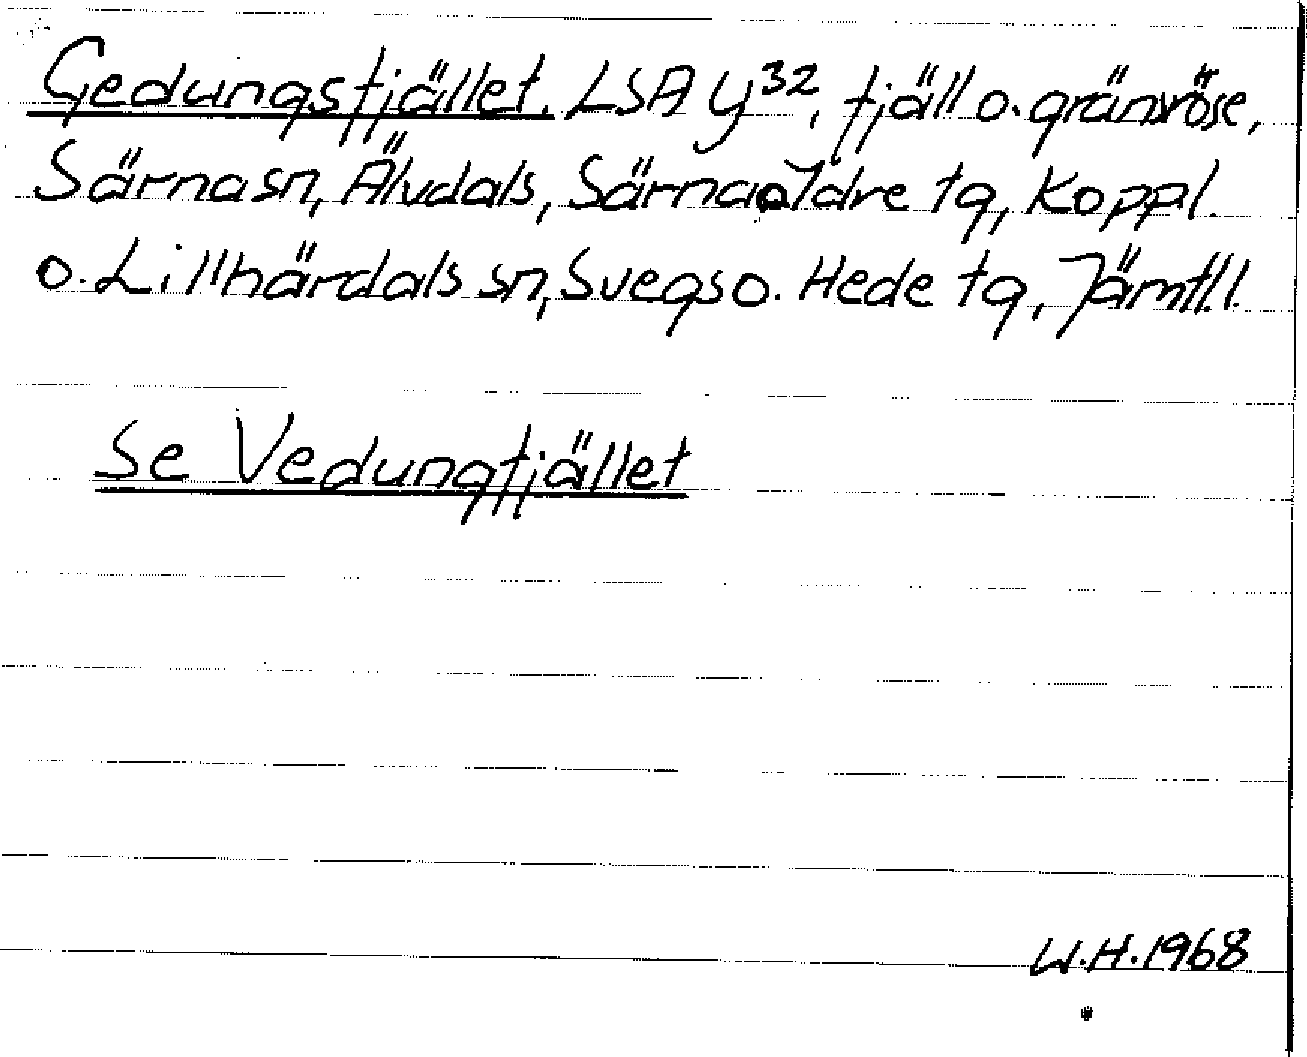 Gedungsfjället. LSA Y32, fjäll o. gränsröse,
Särna sn, Älvdals, Särna o Idre tg, Koppl.
o. Lillhärdals sn, Svegs o. Hede tg, Jämtl.l.
Se Vedungfjället
W.H. 1968